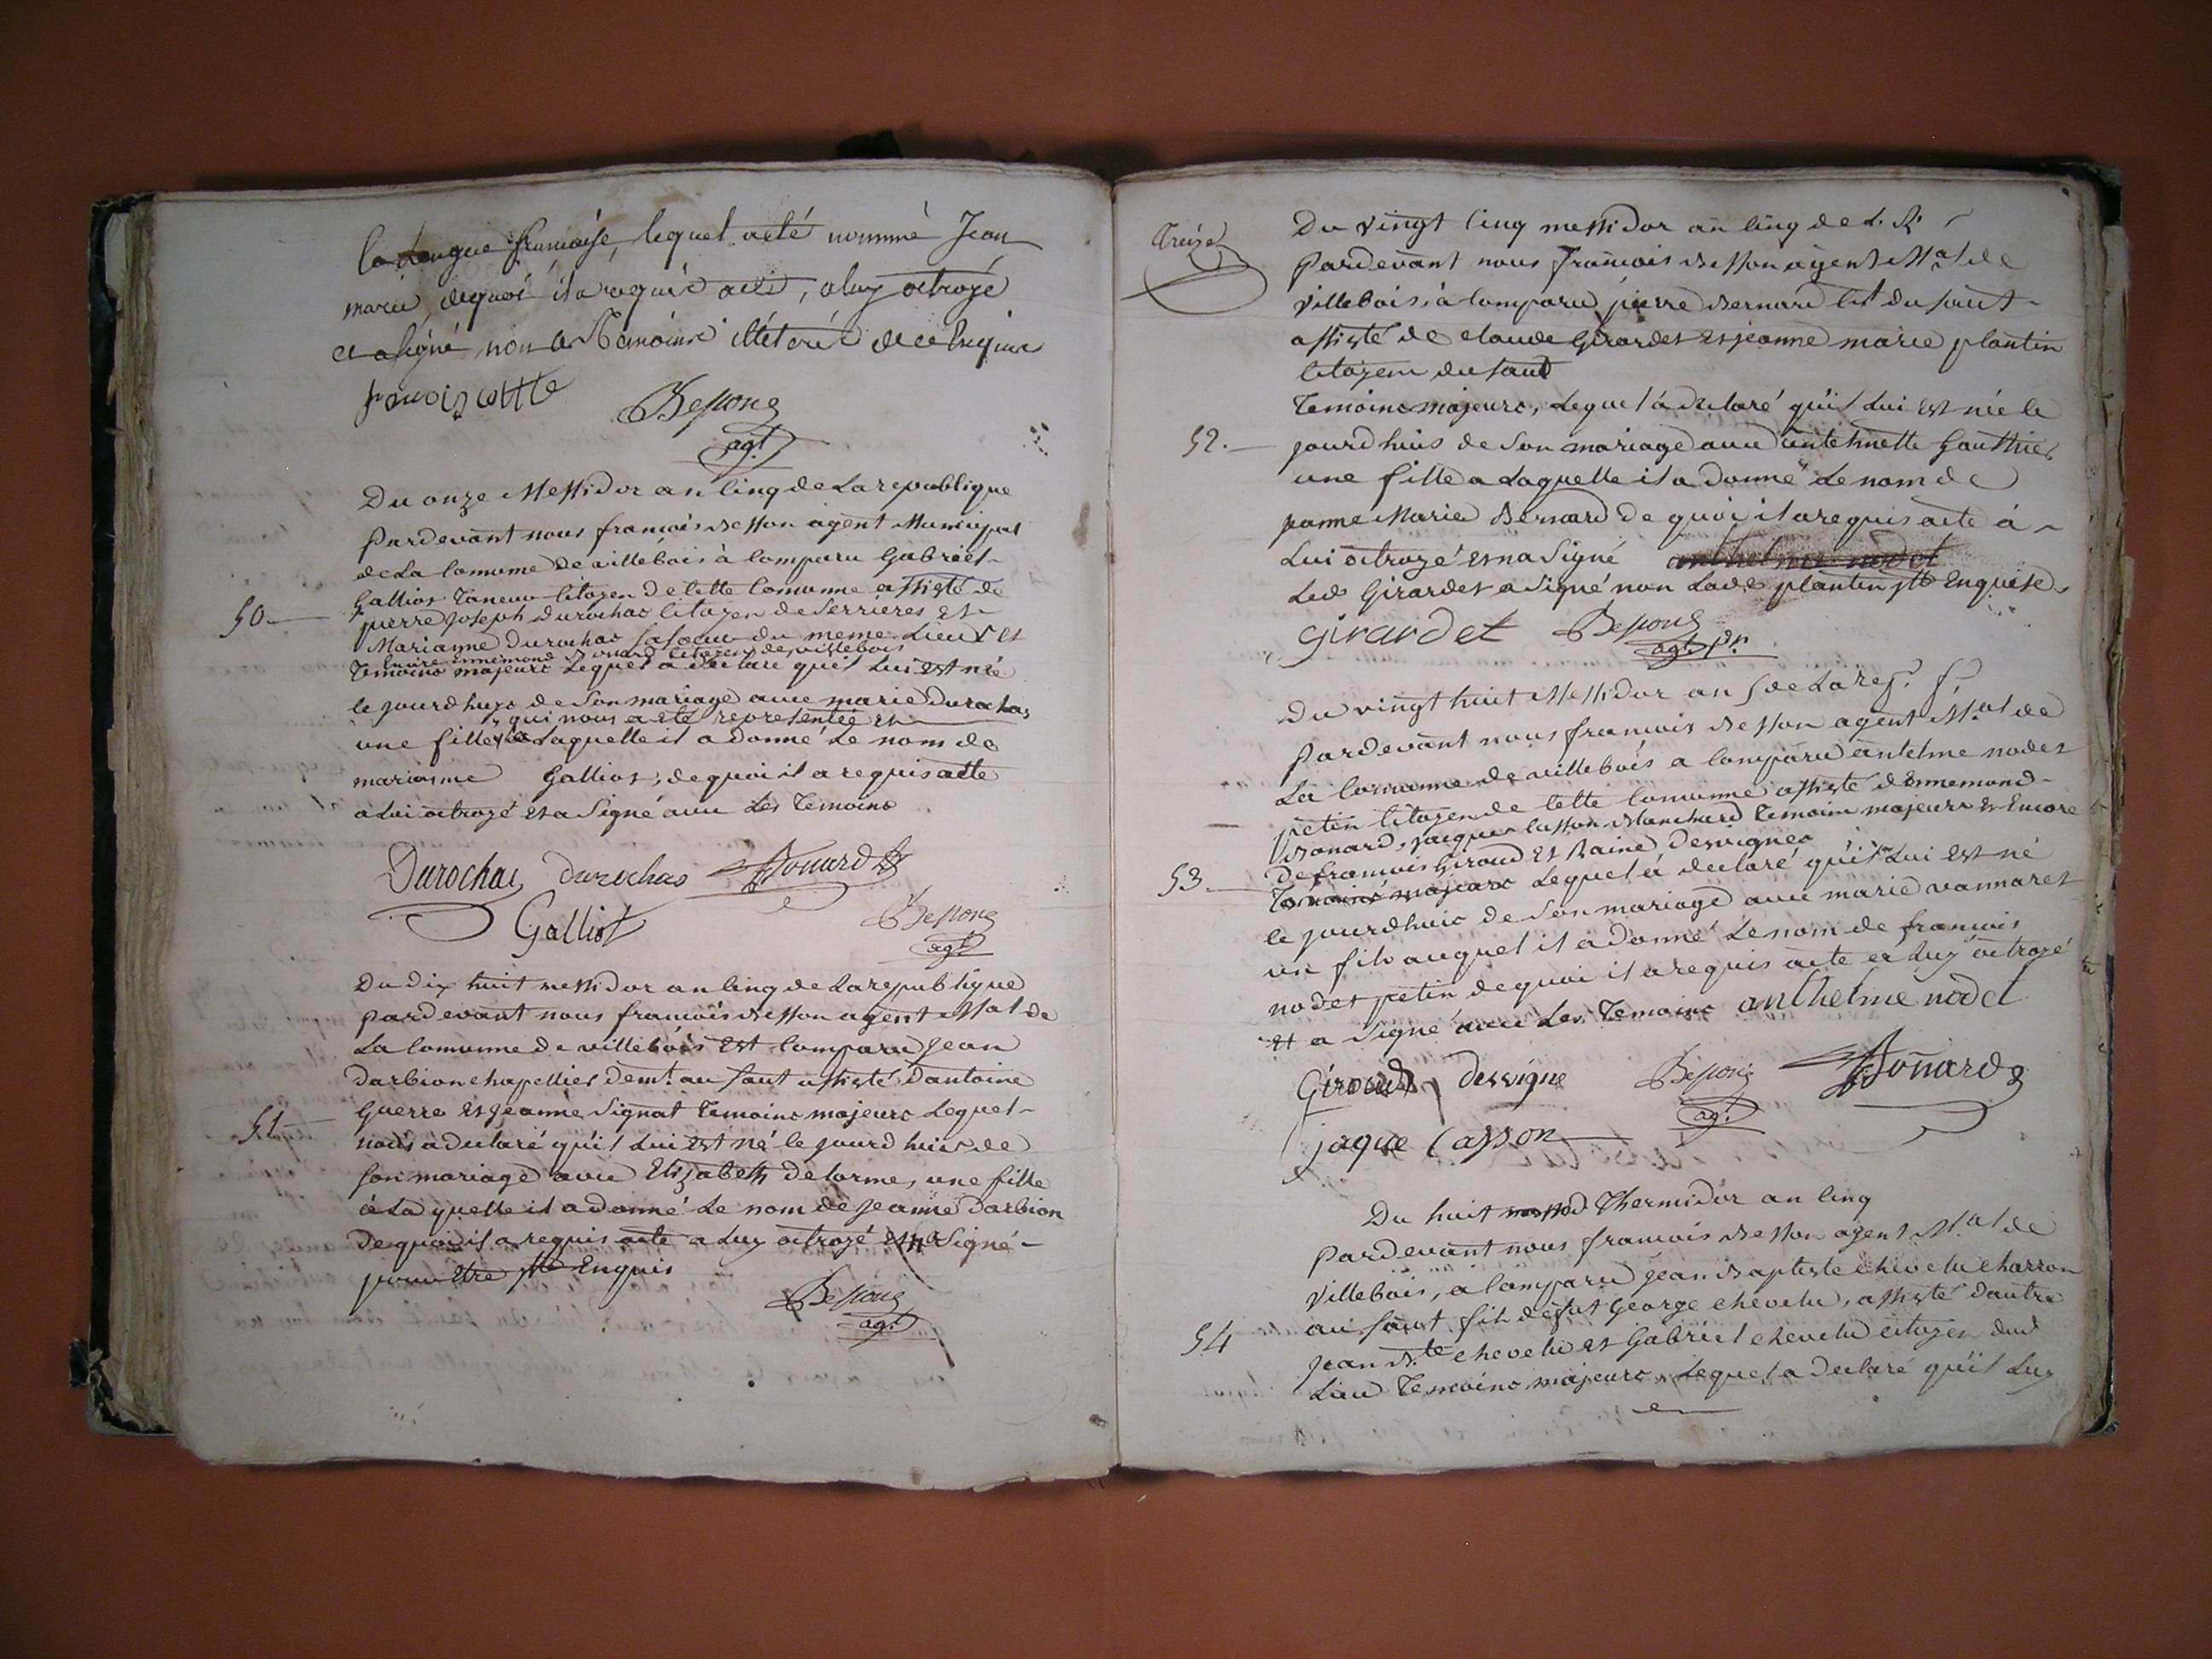 la langue francaise, lequel a eté nommé Jean
marie dequoi il a requis acte, a luy octroyé
et a signé non les temoins illéteré de ce Enquis
francois cotte Besson
agt
Du onze Messidor an Cinq de La republique
Pardevant nous francois Besson agent Municipal
de La Commune de villebois à Comparu Gabriel
50. Galliot Taneur Citoyen de Cette Commune assisté de
pierre Joseph Durochas Citoyen de Serrieres et
Marianne Durochas sa soeur du meme Lieu et
Encore Ennemond Bonard Citoyen de villebois
Temoins majeurs Lequel a declaré qu'il Lui est né
le jourdhuy de Son mariage avec marie Durochas
qui nous a eté representée et
une fille a Laquelle il a donné Le nom de
marianne Galliot, de quoi il a requis acte
a Lui octroyé et a Signé avec Les Temoins
Durochas durochas Bonard
Galliot Besson
agt
Du dix huit messidor an Cinq de La republique
pardevant nous francois Besson agent Mal de
La Commune de villebois Est Comparu Jean
Darbion chapellier demt. au Saut assisté D'antoine
51. Guerre et Jeanne Signat Temoins majeurs Lequel
nous a declaré qu'il Lui est né le jourd huis de
Son mariage avec Elizabeth Delorme, une fille
à La quelle il a donné Le nom de Jeanne Darbion
de quoi il a requis acte a Luy octroyé et n'a Signé
pour Etre Enquis
Besson
agt.
Treize
Du vingt Cinq messidor an Cinq de L. R.
Pardevant nous francois Besson agent Mal de
villebois, à Comparu pierre Bernard Cit du Saut
assisté de claude Girardet et jeanne marie plantin
Citoyens du Saut
Temoins majeurs, Lequel à declaré qu'il Lui est née le
52. jourd huis de Son mariage avec antelmette Gauthier
une fille a Laquelle il a donné Le nom de
jeanne Marie Bernard de quoi il a requis acte à
Lui octroyé et n'a Signé anthelme nodet
Led. Girardet a Signé non Lade plantin Enquise
girardet Besson
agt.
Du vingt huit Messidor an 5 de La rep.
Pardevant nous francois Besson agent Mal de
La Commune de villebois a Comparu antelme nodet
petin Citoyen de Cette Commune assisté d'Ennemond
Bonard, jacques Casson Blanchard Temoins majeurs et Encore
De francois Giroud et Raine Desvignes
53. Temoins majeurs Lequel à declaré qu'il Lui est né
le jourdhuis de Son mariage avec marie vannaret
un fils auquel il a donné Le nom de francois
nodet petin de quoi il a requis acte a Luy octroyé
et a Signé avec Les Temoins anthelme nodet
Giroud desvigne Besson Bonard
agt.
jaque Casson
Du huit messid Thermidor an Cinq
Pardevant nous francois Besson agent Mal de
Villebois, a Comparu Jean Baptiste chevelu charron
au Saut fils défut George chevelu, assisté d'autre
54 Jean Bte. chevelu et Gabriel chevelu citoyen dud
Lieu Temoins majeurs, Lequel a declaré qu'il Luy